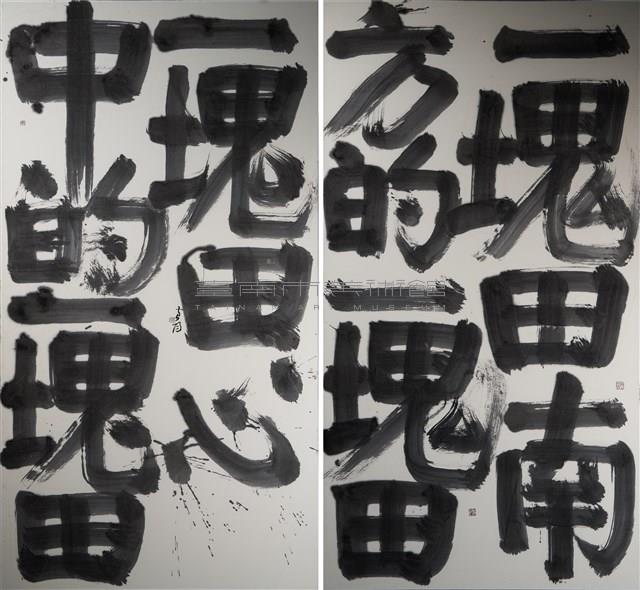 一塊田南
方的一塊田
一塊田心
中的一塊田
臺南市美術館
TAINAN ART MUSEUM